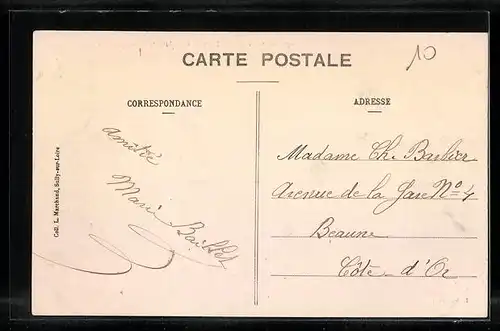 10
CARTE POSTALE
CORRESPONDANCE
Amitié
Marie
Coll. L. Marchand, Sully-sur-Loire
ADRESSE
Madame Ch. Barbier
Avenue de la Gare Nº 4
Beaune
Côte d'Or